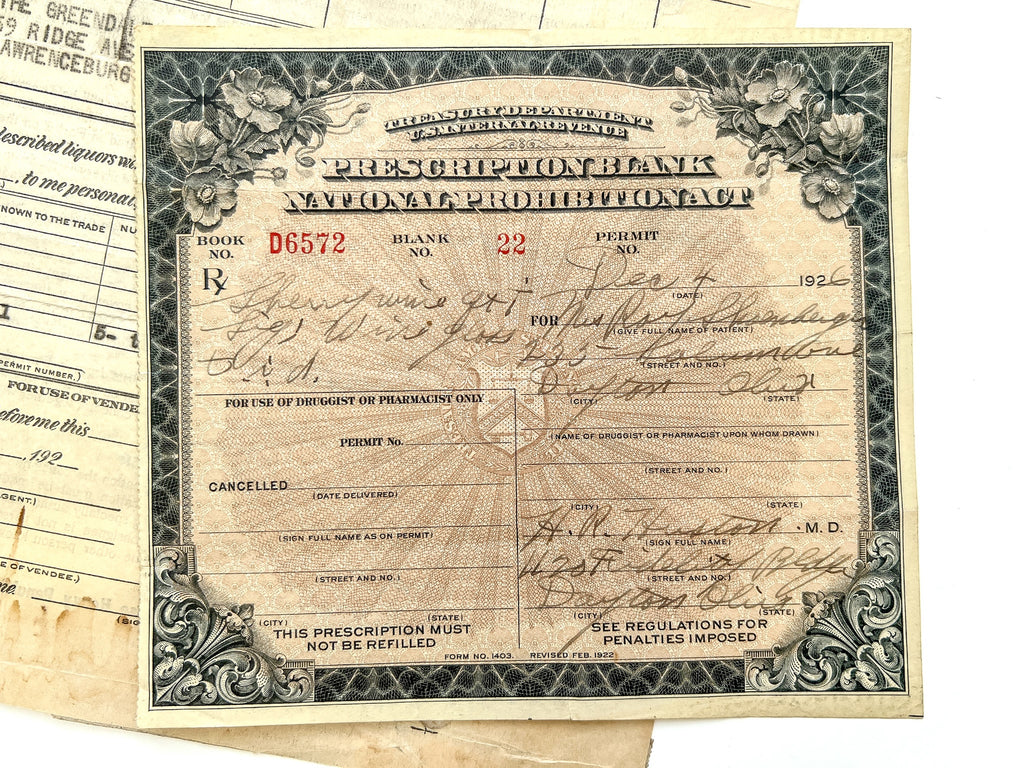 THE GREEND
59 RIDGE AVE
LAWRENCEBURG
described liquors wi
, to me personal
NOWN TO THE TRADE
NU
1
5-
PERMIT NUMBER.)
FOR USE OF VENDE
efore me this
, 192
GENT.)
E OF VENDEE.)
me.
(SIG
TREASURY DEPARTMENT
U.S. INTERNAL REVENUE
PRESCRIPTION BLANK
NATIONAL PROHIBITION ACT
BOOK NO. D6572 BLANK NO. 22 PERMIT NO.
Rx
Dec 4 1926
(DATE)
Sherry wine qt
Sig: Wine glass
t.i.d.
FOR Mrs
(GIVE FULL NAME OF PATIENT)
235
(STREET AND NO.)
Dayton Ohio
(CITY) (STATE)
FOR USE OF DRUGGIST OR PHARMACIST ONLY
PERMIT No.
CANCELLED
(DATE DELIVERED)
(SIGN FULL NAME AS ON PERMIT)
(STREET AND NO.)
(CITY) (STATE)
THIS PRESCRIPTION MUST
NOT BE REFILLED
(NAME OF DRUGGIST OR PHARMACIST UPON WHOM DRAWN)
(STREET AND NO.)
(CITY) (STATE)
H. R. Huston M.D.
(SIGN FULL NAME)
Fidelity Bldg
(STREET AND NO.)
Dayton Ohio
(CITY) (STATE)
SEE REGULATIONS FOR
PENALTIES IMPOSED
FORM NO. 1403. REVISED FEB. 1922